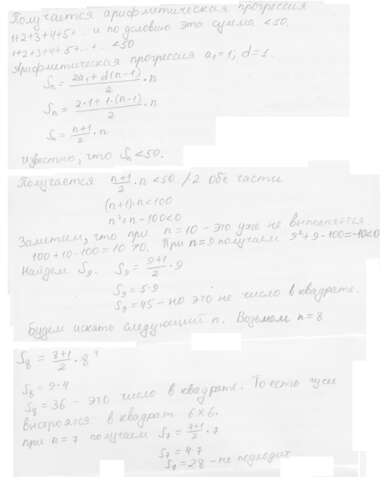 Получается арифметическая прогрессия
1+2+3+4+5+... и по условию эта сумма <50.
1+2+3+4+5+...+... <50
Арифметическая прогрессия a₁=1; d=1.
Sₙ = (2a₁+d(n-1))/2 · n
Sₙ = (2·1+1·(n-1))/2 · n
Sₙ = (n+1)/2 · n
известно, что Sₙ<50.
Получается (n+1)/2 · n <50 /·2 обе части
(n+1)·n<100
n²+n-100<0
Заметим, что при n=10 - это уже не выполняется
100+10-100=10>0. При n=9 получаем 9²+9-100=-10<0
Найдем S₉. S₉ = (9+1)/2 · 9
S₉ = 5·9
S₉ = 45 - но это не число в квадрате.
Будем искать следующий n. Возьмем n=8
S₈ = (8+1)/2 · 8⁴
S₈ = 9·4
S₈ = 36 - это число в квадрате. То есть гуси
выстроялся в квадрат 6×6.
При n=7 получаем S₇ = (7+1)/2 · 7
S₇ = 4·7
S₇ = 28 - не подходит